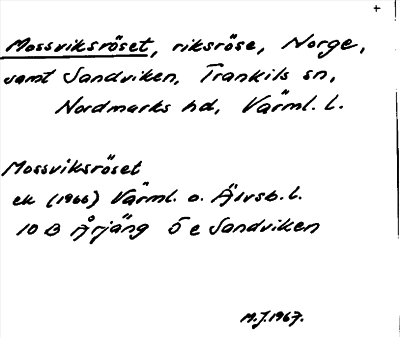 Mossviksröset, riksröse, Norge,
samt Sandviken, Trankils sn,
Nordmarks hd, Värml. l.
Mossviksröset
ek (1966) Värml. o. Älvsb. l.
10 B Årjäng Ö e Sandviken
M.J. 1967.